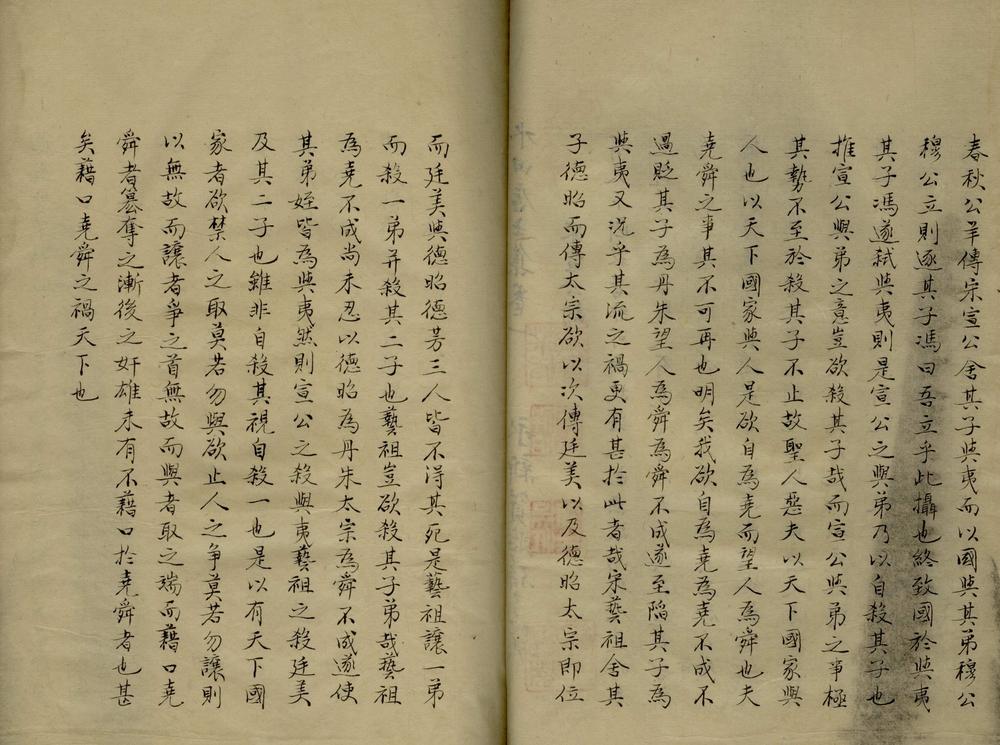 春秋公羊傳宋宣公舍其子與夷而以國與其弟穆公
穆公立則逐其子馮曰吾立乎此攝也終致國於與夷
其子馮遂弒與夷則是宣公之與弟乃以自殺其子也
推宣公與弟之意豈欲殺其子哉而宣公與弟之事極
其勢不至於殺其子不止故聖人惡夫以天下國家與
人也以天下國家與人是欲自為堯而望人為舜也夫
堯舜之事其不可再也明矣我欲自為堯為堯不成不
過貶其子為丹朱望人為舜為舜不成遂至陷其子為
與夷又況乎其流之禍更有甚扵此者哉宋藝祖舍其
子德昭而傳太宗欲以次傳廷美以及德昭太宗即位
而廷美與德昭德芳三人皆不得其死是藝祖讓一弟
而殺一弟并殺其二子也藝祖豈欲殺其子弟哉藝祖
為堯不成尚未忍以德昭為丹朱太宗為舜不成遂使
其弟姪皆為與夷然則宣公之殺與夷藝祖之殺廷美
及其二子也雖非自殺其視自殺一也是以有天下國
家者欲禁人之取莫若勿與欲止人之爭莫若勿讓則
以無故而讓者爭之首無故而與者取之端而藉口堯
舜者篡奪之漸後之奸雄未有不藉口扵堯舜者也甚
矣藉口堯舜之禍天下也